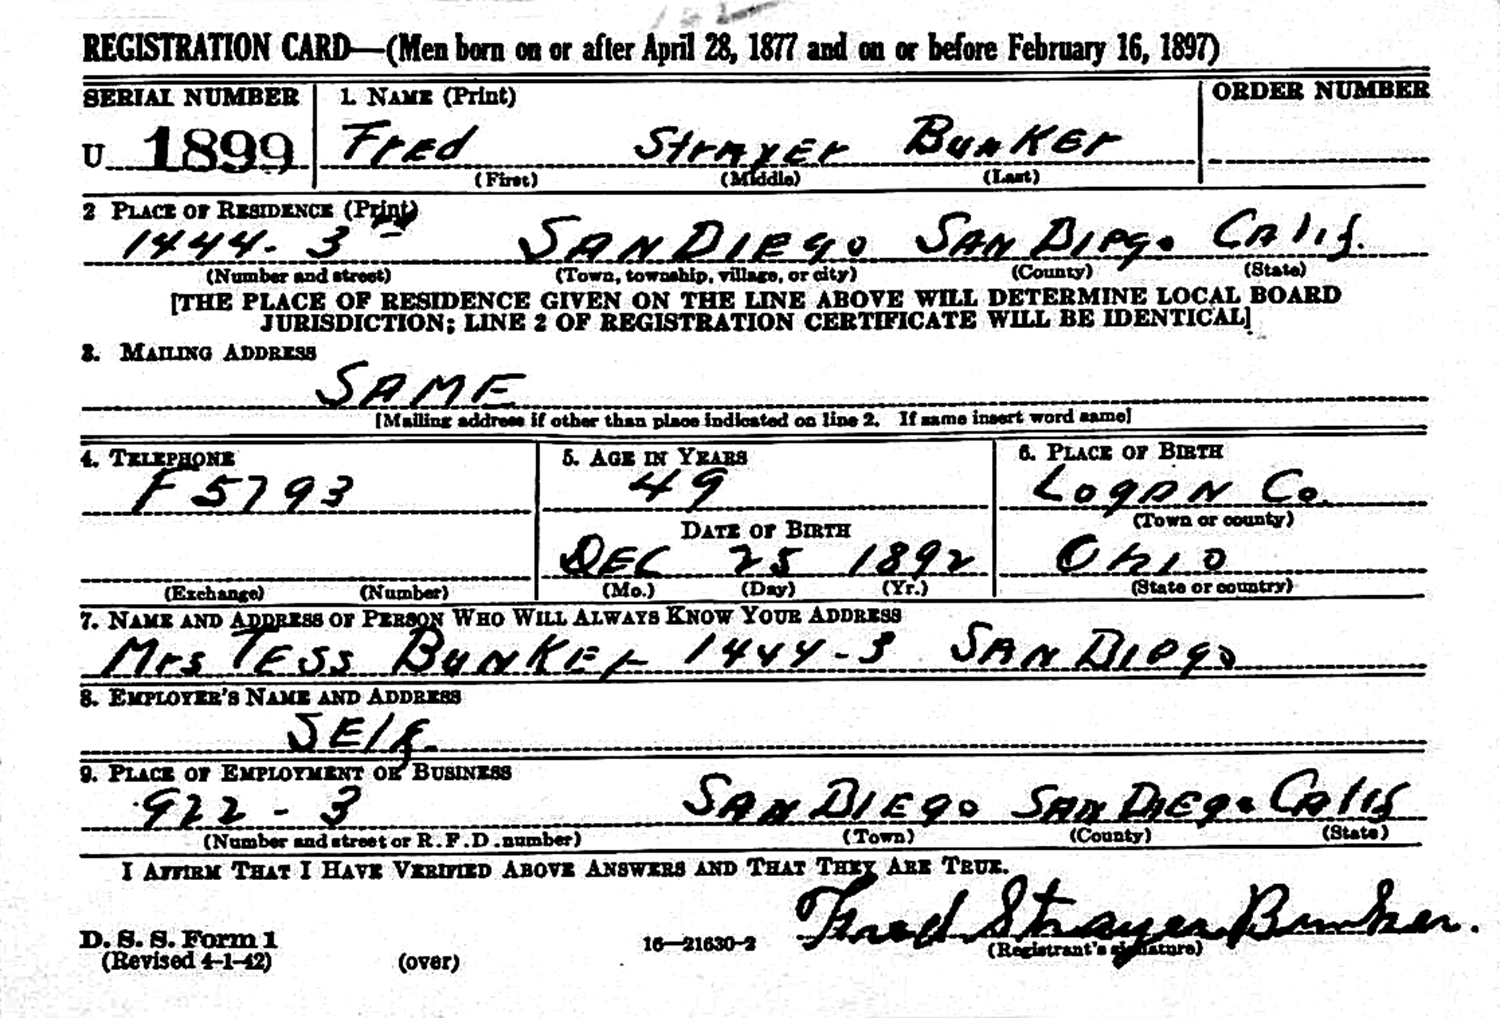 REGISTRATION CARD—(Men born on or after April 28, 1877 and on or before February 16, 1897)
SERIAL NUMBER 1. NAME (Print) ORDER NUMBER
U 1899 Fred Strayer Bunker
(First) (Middle) (Last)
2 PLACE OF RESIDENCE (Print)
1444 - 3rd San Diego San Diego Calif.
(Number and street) (Town, township, village, or city) (County) (State)
[THE PLACE OF RESIDENCE GIVEN ON THE LINE ABOVE WILL DETERMINE LOCAL BOARD
JURISDICTION; LINE 2 OF REGISTRATION CERTIFICATE WILL BE IDENTICAL]
3. MAILING ADDRESS
SAME
[Mailing address if other than place indicated on line 2. If same insert word same]
4. TELEPHONE 5. AGE IN YEARS 6. PLACE OF BIRTH
F 5793 49 Logan Co.
(Town or county)
DATE OF BIRTH
DEC 25 1892 Ohio
(Exchange) (Number) (Mo.) (Day) (Yr.) (State or country)
7. NAME AND ADDRESS OF PERSON WHO WILL ALWAYS KNOW YOUR ADDRESS
Mrs Tess Bunker 1444 - 3 San Diego
8. EMPLOYER'S NAME AND ADDRESS
Self.
9. PLACE OF EMPLOYMENT OR BUSINESS
922 - 3 San Diego San Diego Calif
(Number and street or R.F.D. number) (Town) (County) (State)
I AFFIRM THAT I HAVE VERIFIED ABOVE ANSWERS AND THAT THEY ARE TRUE.
Fred Strayer Bunker.
D. S. S. Form 1 16—21630-2 (Registrant's signature)
(Revised 4-1-42) (over)